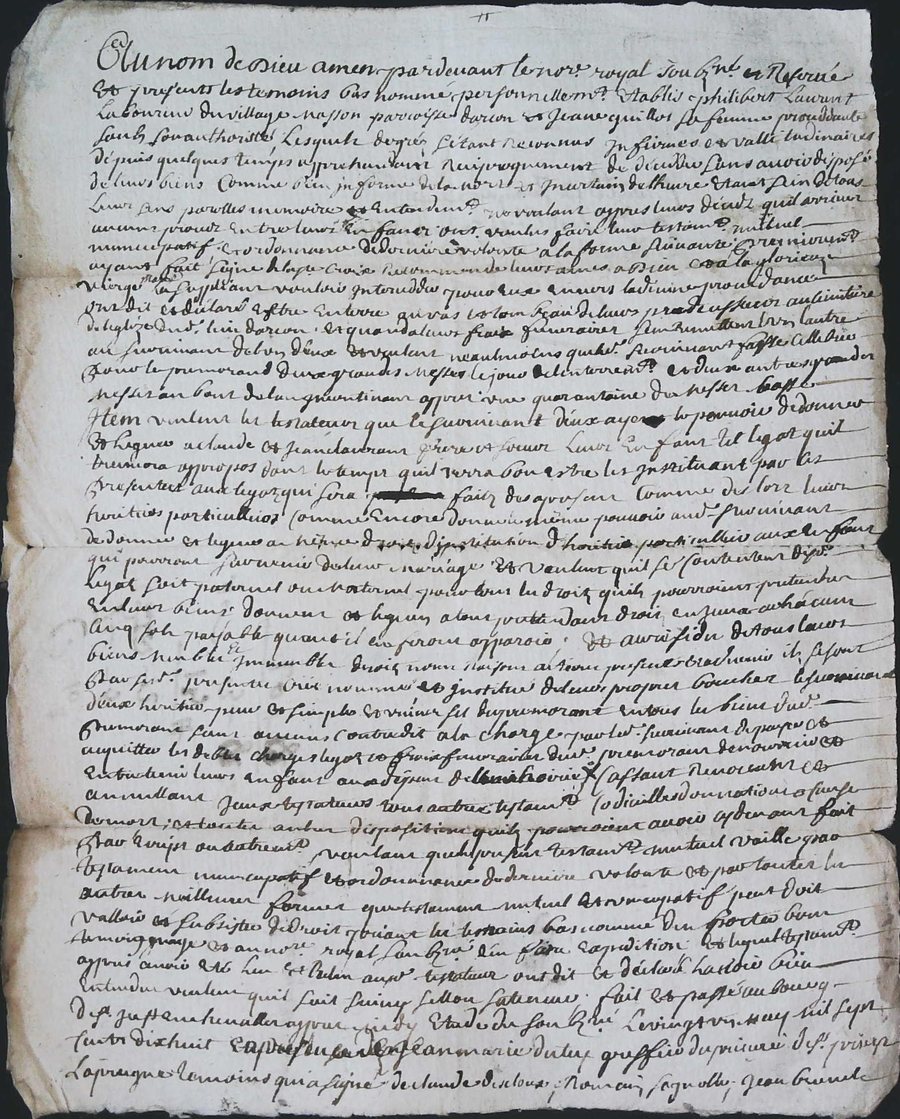 Au nom de Dieu amen pardevant le nore royal soubzné et Reservé
Et presents les temoins bas nommé personnellemt Etablis philibert Laurent
Laboureur du village Masson parroisse darcon et Jeane guillot sa femme procedante
soubs son authorité Lesquels de gré s'étant Reconnus Infirmes et valletudinaires
depuis quelques temps apprehendant Reciproquement de decedder sans avoir disposé
de leurs biens Comme bien informé de la mort et Incertain de lheure Etant sain de tous
Leurs sens parolles memoire et Entendemt ne voulant appres leurs deceds quil arriva
aucun procez Entre leurs Enfans ont voulus faire leur testamt mutuel
nuncupatif et ordonnance de derniere volonté a la forme suivante premieremt
ayant fait signe de la ste Croix Recommandé leurs ames a Dieu et a la glorieuse
vierge marie la suppliant vouloir Interceder pour Eux envers la divine providance
ont dit et declaré Estre Enterré au vas et tombeau de leurs predecesseurs au cimitiere
de leglize dud. lieu darcon, et quand a leurs frais funeraires sen Remettent lun lautre
au survivant de lun deux et voulant neantmoins que led. survivant fasse Cellebrer
pour le premorand deux grandes Messes le jour de lenterremt et deux autres grandes
Messes au bout de lan une quarantaine de Messes basse
Item veulent les testateurs que le survivant deux aye le pouvoir de donner
et leguer a claude et Jeane laurant frere et soeur Leurs Enfant tel legat quil
trouvera appropos dans le temps quil verra bon estre les Instituant par les
presentes aux legaz qui sera faitz des apresent Comme des lors leurs
heritiers particulliers Comme Encore donne le même pouvoir aud. survivant
de donner et leguer au même droit dinstitution dheritier particullier aux Enfant
qui pourront survenir de leur Mariage et veulent quil se Contentent dud.
Legat soit paternel ou Maternel pour tous les droits quils pourroient pretendre
En leurs biens; donnent et leguent a tous pretendans droits en Iceux a chacun
cinq sols payable quant il en feront apparoir; et au residu de tous leurs
biens Meuble et Immeuble droits noms Raisons actions presents et advenir ils se sont
par ses. presentes créé nommé et institué de leurs propres bouches le survivant
deux heritier pur et simple et universel du premorant en tous les biens dud.
premorant sans aucuns contredit a la charge par led. survivant de payer et
acquitter les debtes charges legaz et frais funeraires dud. premorant de nourrir et
Entretenir leurs enfant aux depens de Cassant Revocant et
annullant Iceux testateurs tous autres testamt Codicilles donnations a cause
de mort, et toutes autres dispositions quils pourroient avoir cy devant fait
par Ecript ou autremt voulant que le present testamt mutuel vaille par
testament nuncupatif et ordonnance de derniere volonté et par toutes les
autres Meilleures formes que testament mutuel et nuncupatif peut doit
valloir et subsister de droit priant les temoins bas nommé den porter bon
temoignage et au nore royal soubzné den faire Expedition et lequel testamt
appres avoir Eté Leu et Relu auxd. testateurs ont dit et declaré lavoir bien
Entendu veulent quil soit suivy sellon sa teneur. fait et passé au bourg
de st Just en chevallet appres midy Etude du soubzné Le vingt un may mil sept
Cents dix huit En presence de Jean marie dutey greffier du prieuré de st priest
Laprugne temoins qui a signé de claude disloux, Romain Sagnolle, Jean brunel